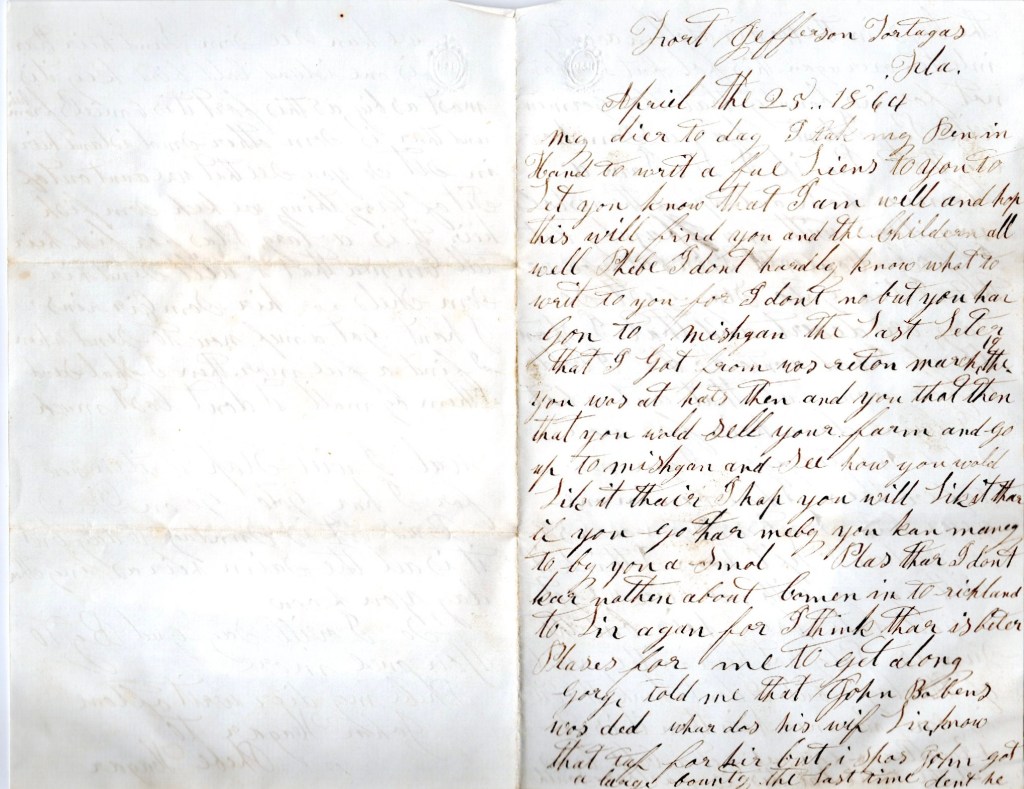 Fort Jefferson Tortugas
Fla.
April the 25.. 1864
my dier to day I tak my Pen in
Hand to writ a fue Liens to you to
Let you know that I am well and hop
this will find you and the Childern all
well Phebe I dont hardly know what to
writ to you for I dont no but you hav
gon to mishgan the Last Leter
that I Got from was reton march the 19
you was at hats then and you that then
that you wold sell your farm and go
up to mishgan and see how you wold
Lik it thair I hop you will Lik it thar
if you go thar meby you kan maneg
to by you a Smol Plas thar I dont
kar nathen about Comen in to richland
to Liv agan for I think thar is beter
Plases for me to get along
Gorg told me that John Robens
was ded whar dos his wif Liv know
that for hir but i spos John got
a large bounty the last time dent he